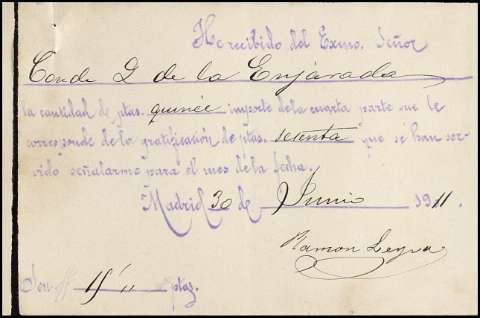 He recibido del Exmo. Señor
Conde D de la Enjarada
la cantidad de ptas. quince importe de la cuarta parte que le
corresponde de la gratificación de ptas. sesenta que se han ser-
vido señalarme para el mes de la fecha.
Madrid 30 de Junio 1911.
Ramon Leyva
Son 15 ptas.